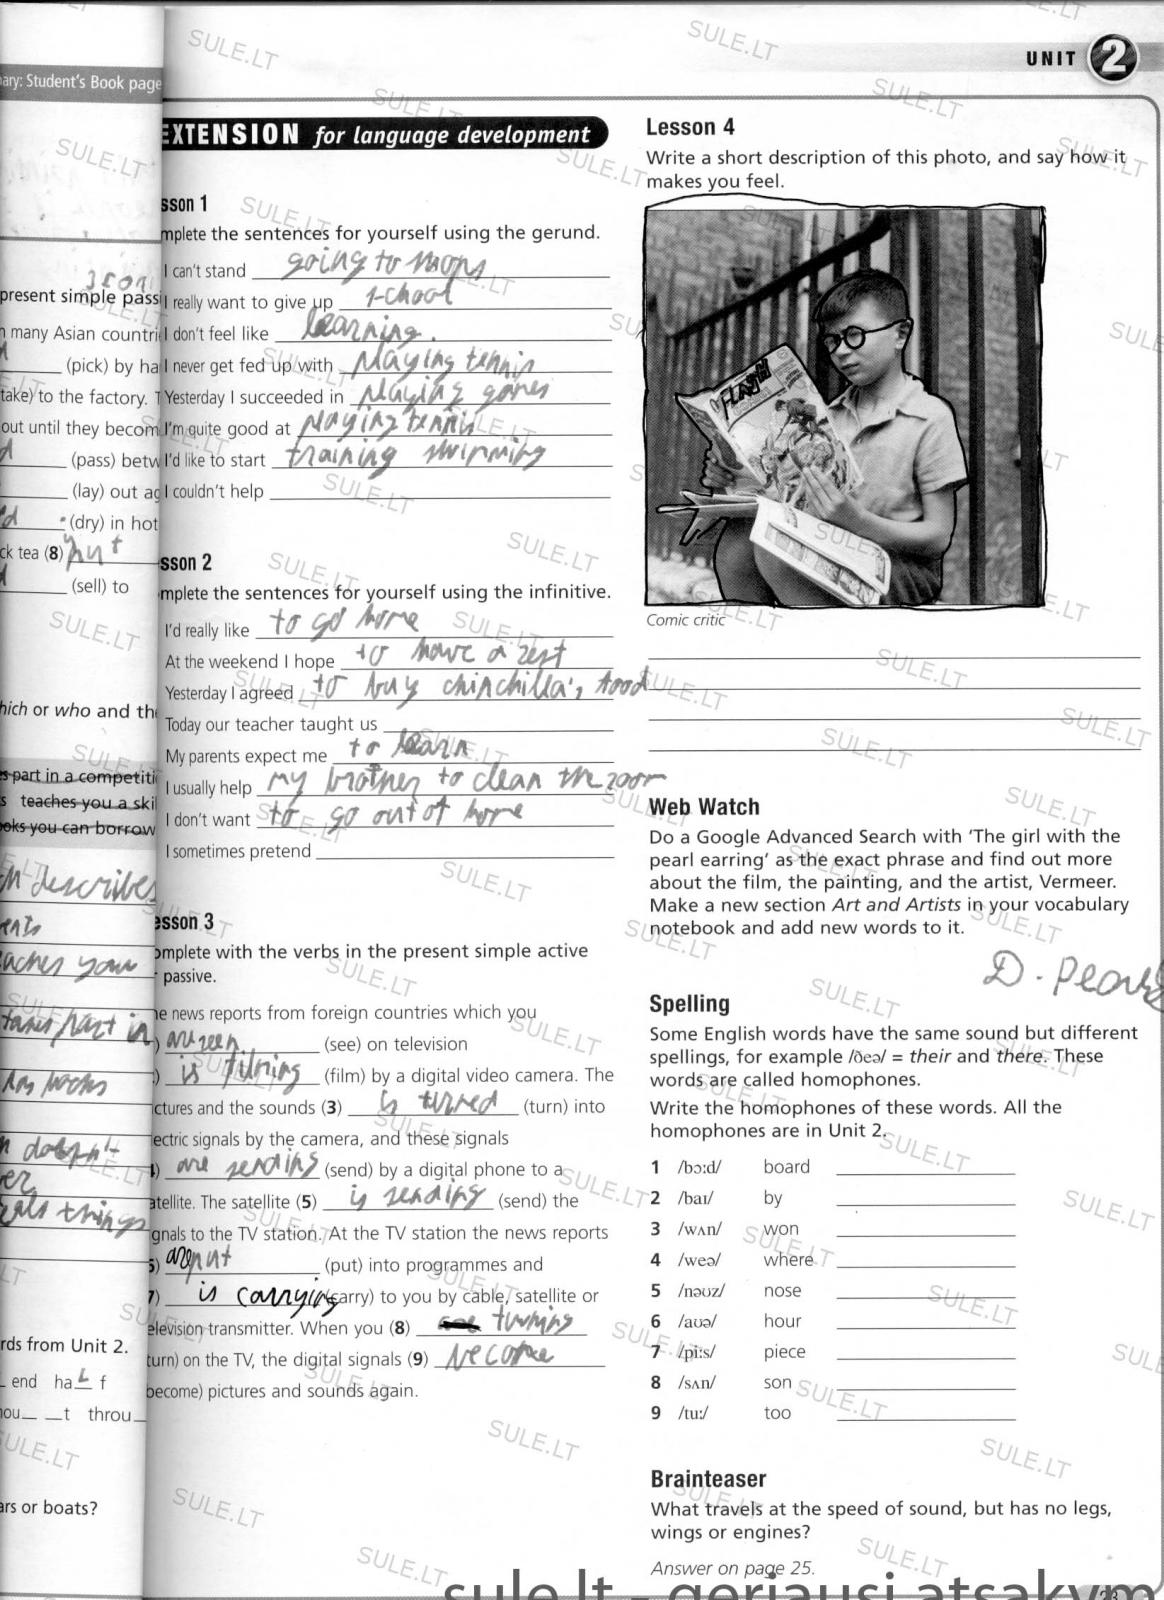 UNIT 2
ary: Student's Book page
present simple pass
many Asian countri
(pick) by ha
take) to the factory. T
out until they becom
(pass) betw
(lay) out ag
(dry) in hot
ck tea (8)
(sell) to
hich or who and the
s part in a competiti
s teaches you a skil
oks you can borrow
describes
ents
eaches your
takes part in
books
things
rds from Unit 2.
end ha L f
hou__ __t throu__
ars or boats?
EXTENSION for language development
sson 1
mplete the sentences for yourself using the gerund.
I can't stand going to shops
I really want to give up school
I don't feel like learning.
I never get fed up with playing tennis
Yesterday I succeeded in playing games
I'm quite good at playing tennis
I'd like to start training swimming
I couldn't help
sson 2
mplete the sentences for yourself using the infinitive.
I'd really like to go home
At the weekend I hope to have a rest
Yesterday I agreed to buy chinchilla's food
Today our teacher taught us
My parents expect me to learn
I usually help my brother to clean the room
I don't want to go out of home
I sometimes pretend
esson 3
omplete with the verbs in the present simple active
passive.
e news reports from foreign countries which you
) are seen (see) on television
) is filming (film) by a digital video camera. The
ctures and the sounds (3) is turned (turn) into
ectric signals by the camera, and these signals
) are sending (send) by a digital phone to a
atellite. The satellite (5) is sending (send) the
gnals to the TV station. At the TV station the news reports
) are put (put) into programmes and
7) is carrying (carry) to you by cable, satellite or
elevision transmitter. When you (8) turning
turn) on the TV, the digital signals (9) become
become) pictures and sounds again.
Lesson 4
Write a short description of this photo, and say how it
makes you feel.
FLASH
Comic critic
Web Watch
Do a Google Advanced Search with 'The girl with the
pearl earring' as the exact phrase and find out more
about the film, the painting, and the artist, Vermeer.
Make a new section Art and Artists in your vocabulary
notebook and add new words to it.
D.
Spelling
Some English words have the same sound but different
spellings, for example /ðeə/ = their and there. These
words are called homophones.
Write the homophones of these words. All the
homophones are in Unit 2.
1 /bɔːd/ board
2 /baɪ/ by
3 /wʌn/ won
4 /weə/ where
5 /nəʊz/ nose
6 /aʊə/ hour
7 /piːs/ piece
8 /sʌn/ son
9 /tuː/ too
Brainteaser
What travels at the speed of sound, but has no legs,
wings or engines?
Answer on page 25.
23
SULE.LT
sule.lt - geriausi atsakym